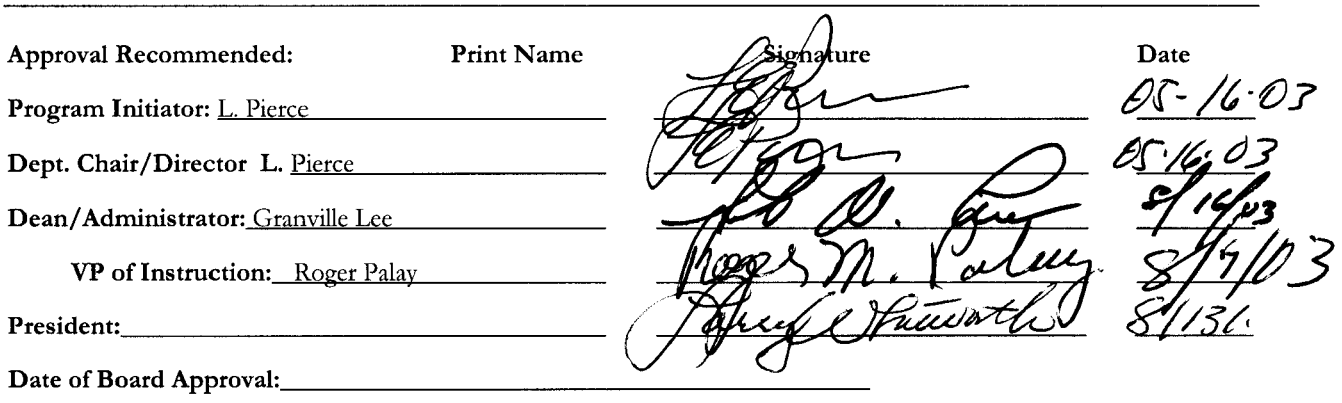 Approval Recommended: Print Name Signature Date
Program Initiator: L. Pierce 05-16-03
Dept. Chair/Director L. Pierce 05.16.03
Dean/Administrator: Granville Lee
VP of Instruction: Roger Palay Roger M. Palay 8/7/03
President: Whitworth
Date of Board Approval: